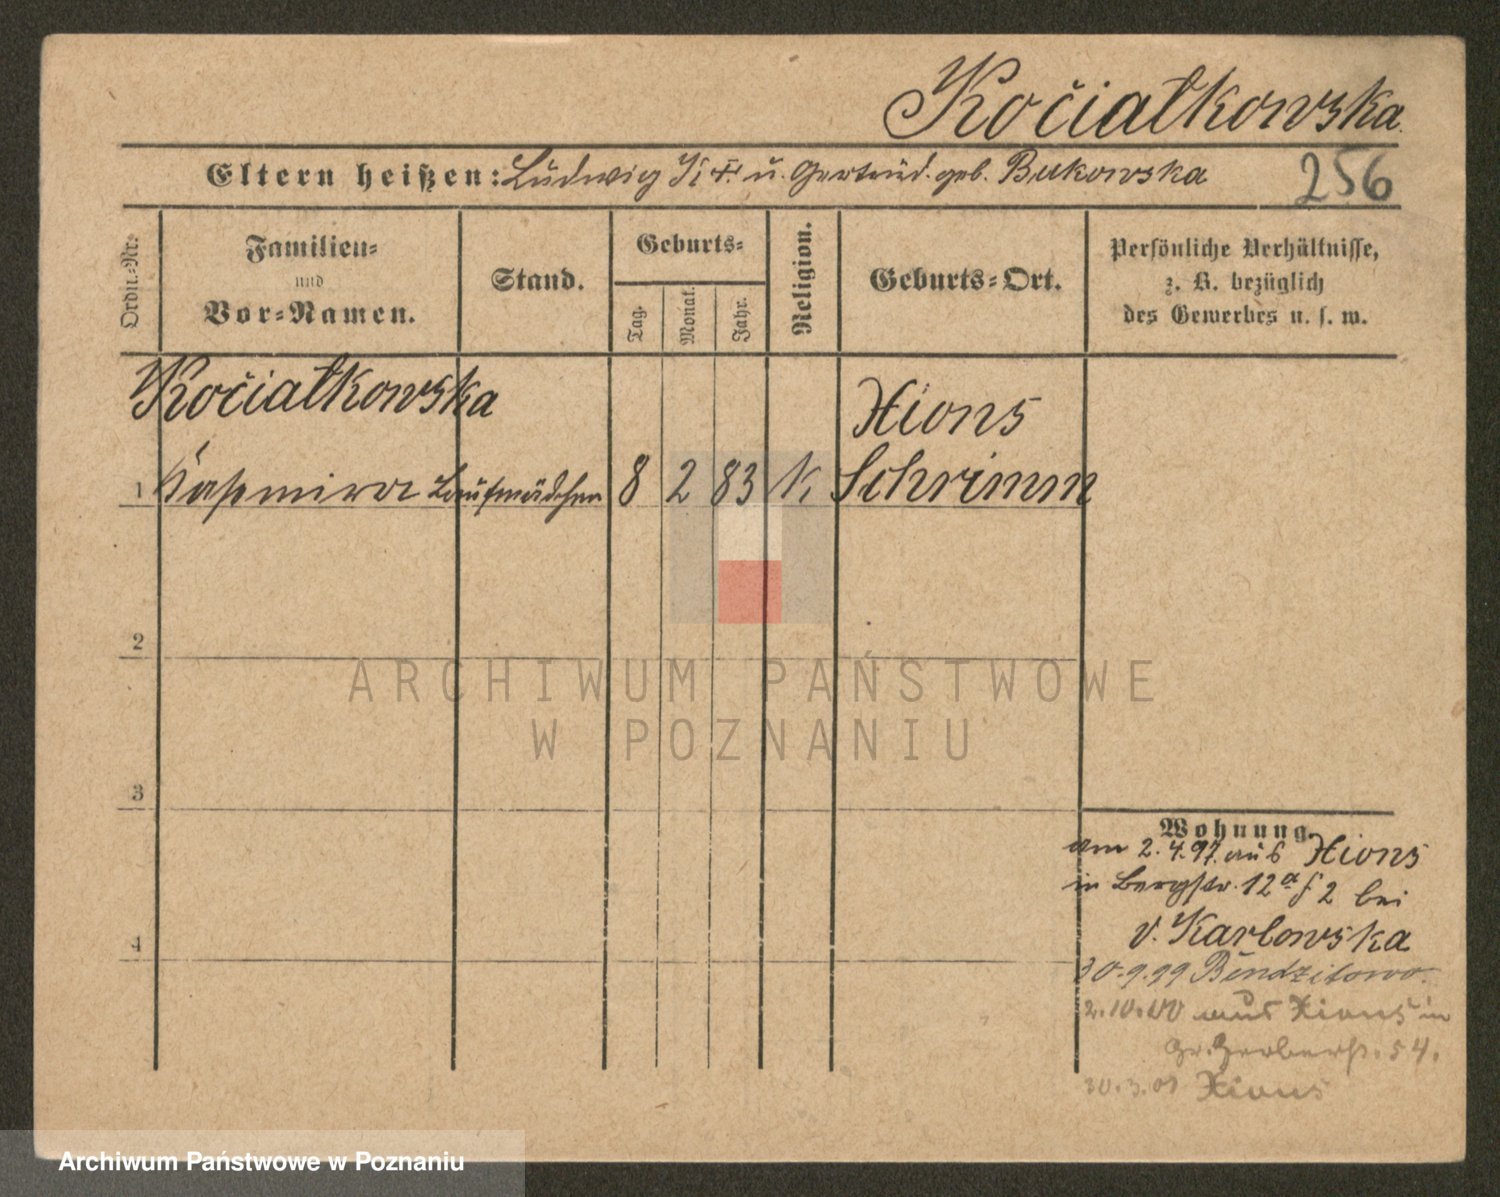 Kočiatkowska.
Eltern heißen: Ludwig u. Gertrud. geb. Bukowska
256
Ordn.-Nr.
Familien-
und
Vor-Namen.
Stand.
Geburts-
Tag.
Monat.
Jahr.
Religion.
Geburts-Ort.
Persönliche Verhältnisse,
z. B. bezüglich
des Gewerbes u. s. w.
Kočiatkowska
Xions
1 Kasimira Laufmädchen 8 2 83 K. Schrimm
2
3
4
Wohnung.
am 2.4.97. aus Xions
in Bergstr. 12a 2 bei
v. Karlowska
30.9.99
2.10.00 aus Xions in
Gr. Gerberst. 54.
30.3.01 Xions
ARCHIWUM PAŃSTWOWE
W POZNANIU
Archiwum Państwowe w Poznaniu